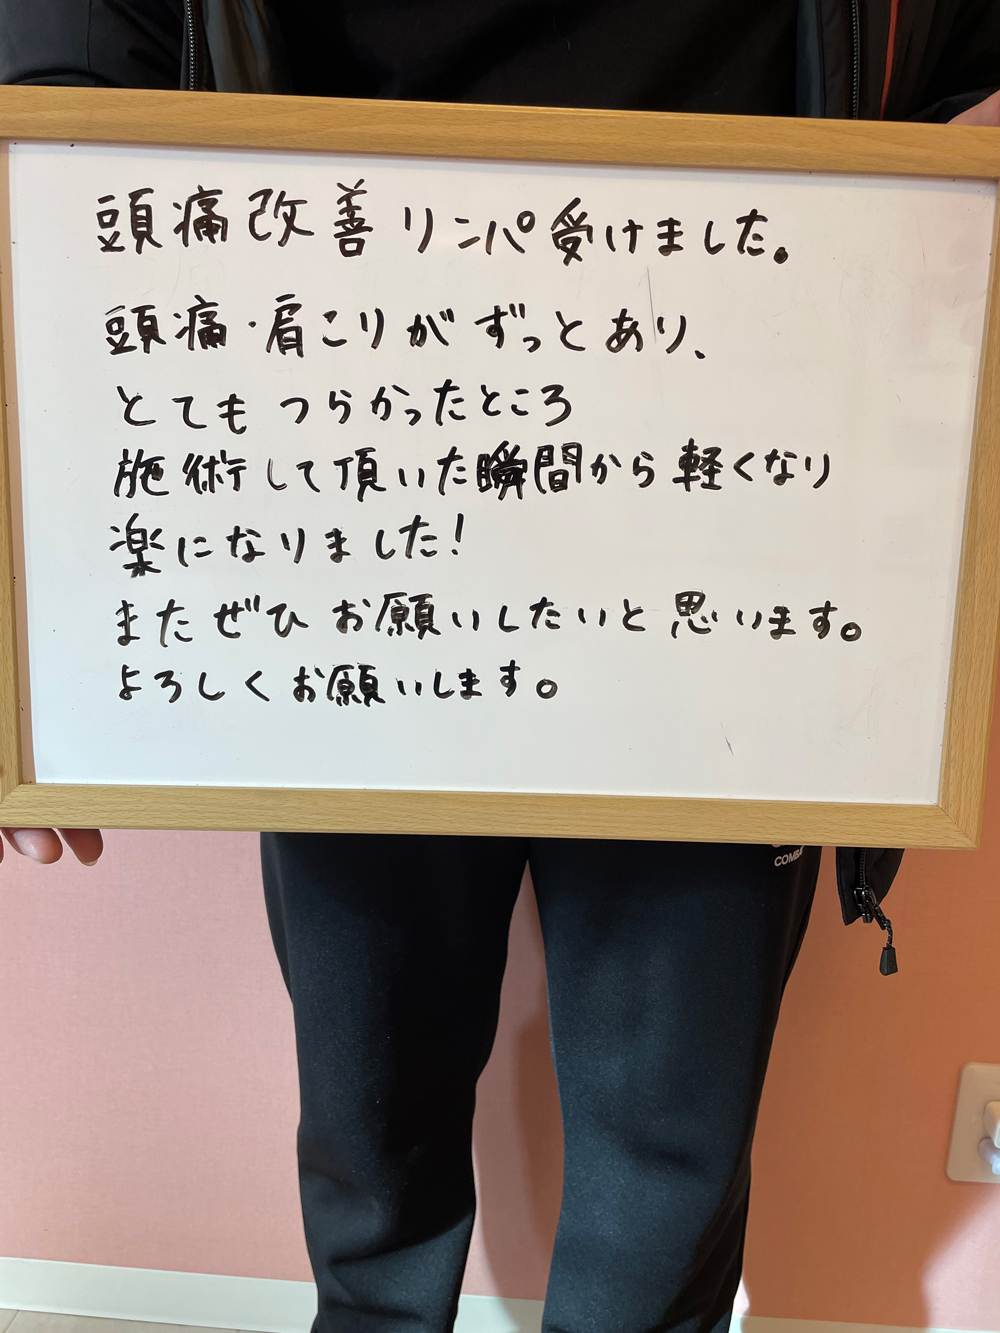 頭痛改善リンパ受けました。
頭痛・肩こりがずっとあり、
とてもつらかったところ
施術して頂いた瞬間から軽くなり
楽になりました!
またぜひお願いしたいと思います。
よろしくお願いします。